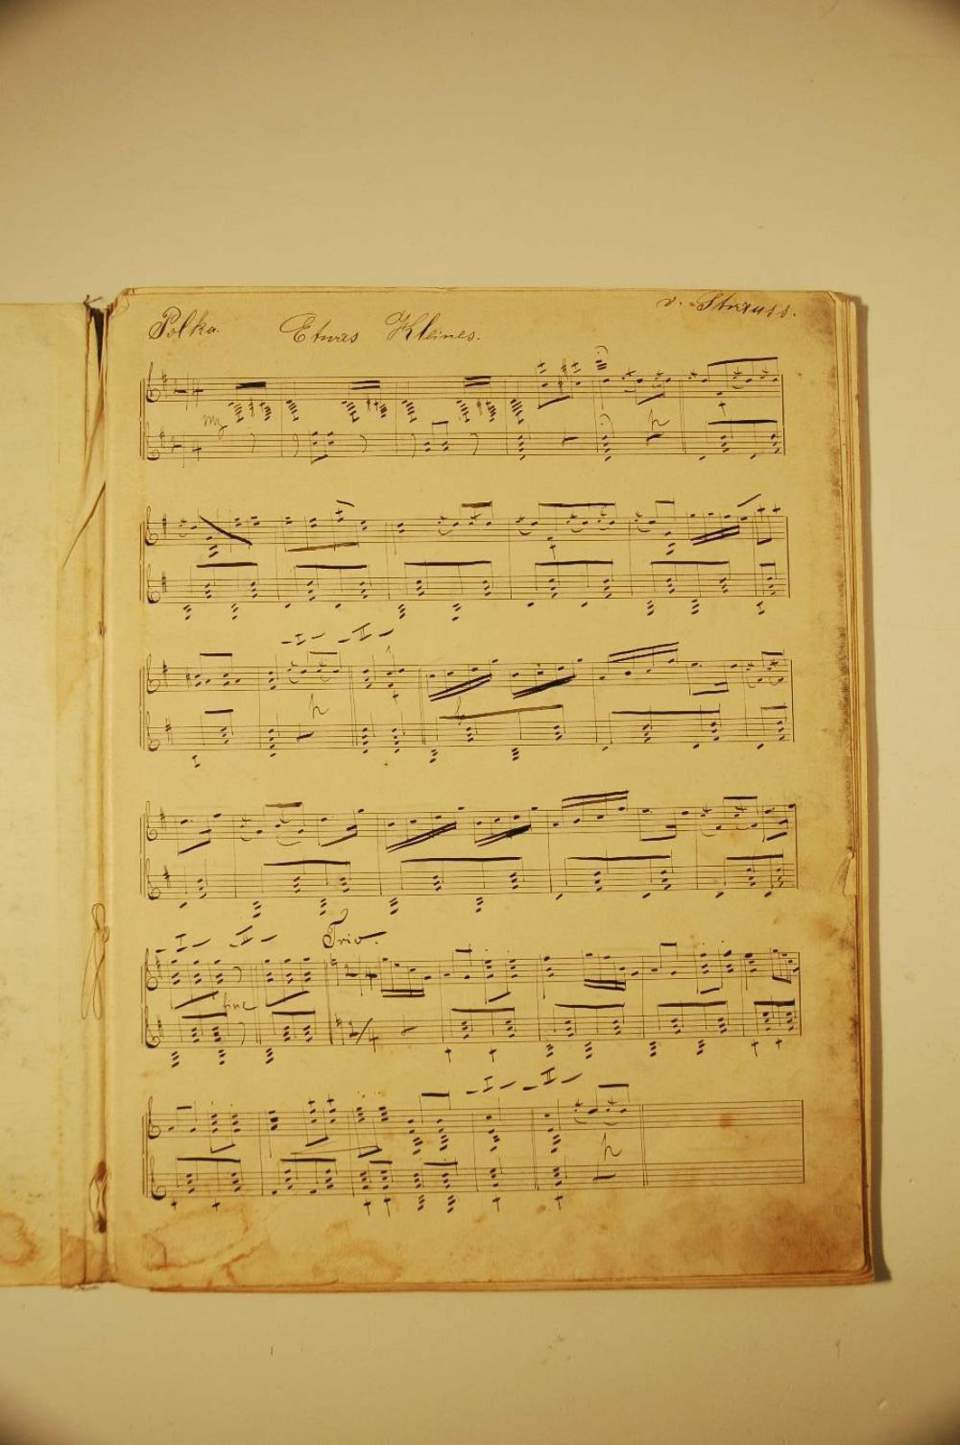 Polka. Etwas Kleines. v. Strauss.
mf
p
I II
p
I II Trio.
fine
I II
p